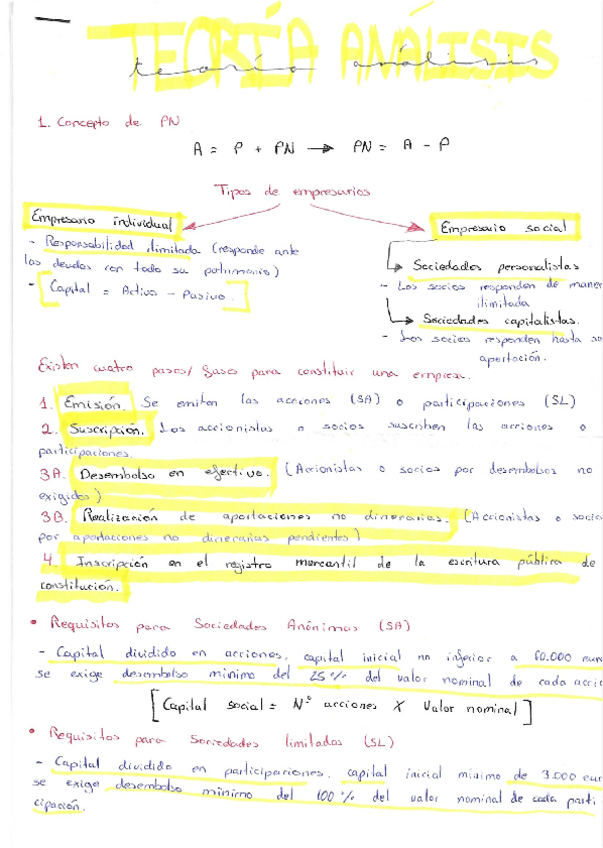 TEORÍA ANÁLISIS
teoría análisis
1. Concepto de PN
A = P + PN → PN = A - P
Tipos de empresarios
Empresario individual
- Responsabilidad ilimitada (responde ante
las deudas con todo su patrimonio)
- Capital = Activo - Pasivo.
Empresario social
Sociedades personalistas
- Los socios responden de maner
ilimitada
Sociedades capitalistas.
- Los socios responden hasta so
aportación.
Existen cuatro pasos/ fases para constituir una empresa.
1. Emisión. Se emiten las acciones (SA) o participaciones (SL)
2. Suscripción. Los accionistas o socios suscriben las acciones o
participaciones.
3A. Desembolso en efectivo. (Accionistas o socios por desembolsos no
exigidos)
3B. Realización de aportaciones no dinerarias. (Accionistas o socio
por aportaciones no dinerarias pendientes)
4. Inscripción en el registro mercantil de la escritura pública de
constitución.
• Requisitos para Sociedades Anónimas (SA)
- Capital dividido en acciones, capital inicial no inferior a 60.000 euro
se exige desembolso mínimo del 25% del valor nominal de cada accio
[Capital social = Nº acciones X Valor nominal]
• Requisitos para Sociedades limitadas (SL)
- Capital dividido en participaciones, capital inicial mínimo de 3.000 eur
se exige desembolso mínimo del 100% del valor nominal de cada parti
cipación.